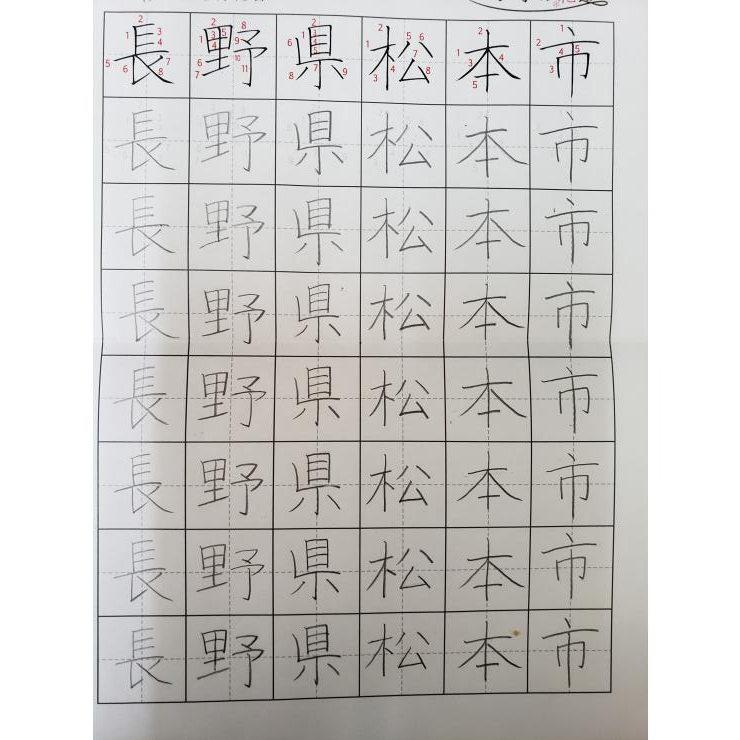 長野県松本市
長野県松本市
長野県松本市
長野県松本市
長野県松本市
長野県松本市
長野県松本市
長野県松本市